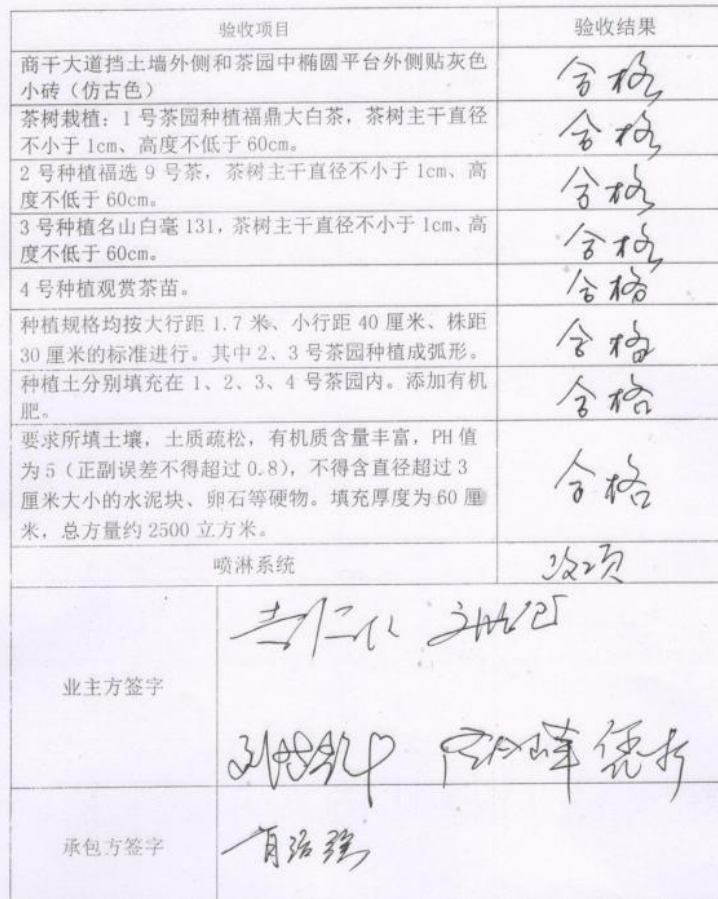 验收项目 验收结果
商干大道挡土墙外侧和茶园中椭圆平台外侧贴灰色
小砖（仿古色） 合格
茶树栽植：1号茶园种植福鼎大白茶，茶树主干直径
不小于1cm、高度不低于60cm。 合格
2号种植福选9号茶，茶树主干直径不小于1cm、高
度不低于60cm。 合格
3号种植名山白毫131，茶树主干直径不小于1cm、高
度不低于60cm。 合格
4号种植观赏茶苗。 合格
种植规格均按大行距1.7米、小行距40厘米、株距
30厘米的标准进行。其中2、3号茶园种植成弧形。 合格
种植土分别填充在1、2、3、4号茶园内。添加有机
肥。 合格
要求所填土壤，土质疏松，有机质含量丰富，PH值
为5（正副误差不得超过0.8），不得含直径超过3
厘米大小的水泥块、卵石等硬物。填充厚度为60厘
米，总方量约2500立方米。 合格
喷淋系统
业主方签字
承包方签字